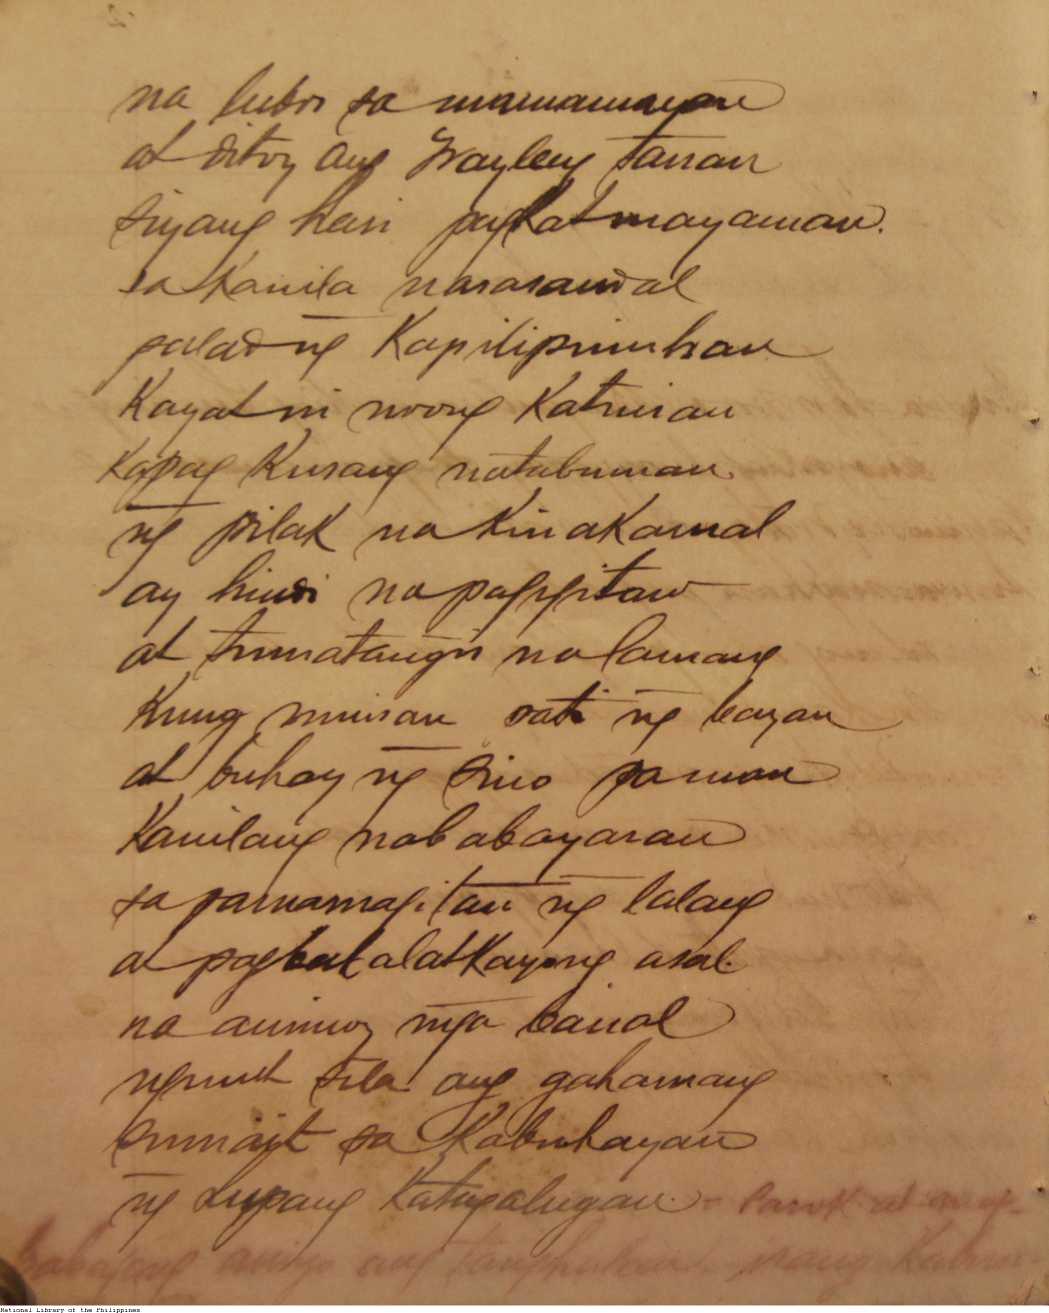 na lubos sa mamamayan
at dito'y ang Frayleng tanan
siyang hari pagkat mayaman.
sa kanila nasasandal
palad ng Kapilipinuhan
Kayat ni noong Katuiran
Kapag Kusang natabunan
ng pilak na Kinakamal
ay hindi na pagigitaw
at tumatangis na lamang
Kung minsan pati ng bayan
at buhay ng sino paman
Kanilang nababayaran
sa pamamagitan ng lalang
at pagbabalatkayong asal.
na animoy mga banal
ngunit sila ang gahamang
sumaid sa Kabuhayan
ng Lupang Katagalugan. -
ang isang
National Library of the Philippines